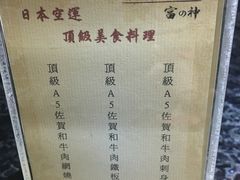 日本空運
富の神
頂級美食料理
頂級A5佐賀和牛肉刺身
頂級A5佐賀和牛肉鐵板
頂級A5佐賀和牛肉網燒